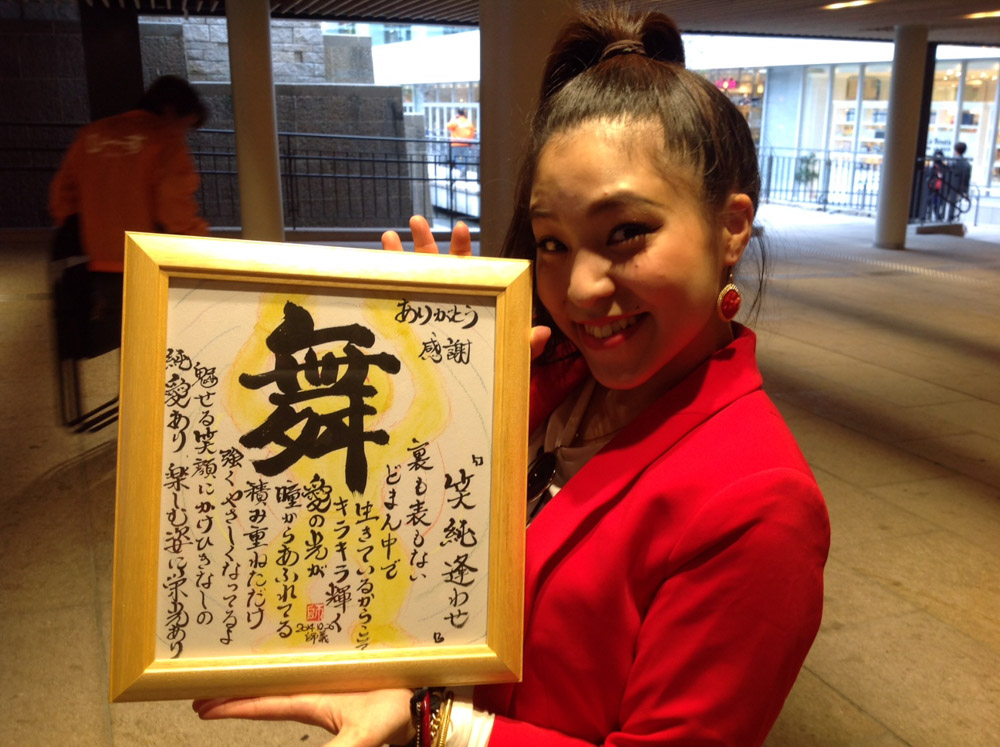 ありがとう
感謝
舞
『笑純逢わせ』
裏も表もない
どまん中で
生きているからこそ
キラキラ輝く
愛の光が
瞳からあふれてる
積み重ねただけ
強くやさしくなってるよ
魅せる笑顔にかけひきなしの
純愛あり 楽しむ姿に栄光あり